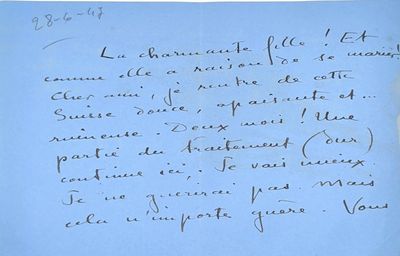 28-6-47
La charmante fille ! Et
comme elle a raison de se marier !
Cher ami, je rentre de cette
Suisse douce, apaisante et...
ruineuse. Deux mois ! Une
partie du traitement (dur)
continue ici. Je vais mieux.
Je ne guérirai pas. Mais
cela n'importe guère. Vous